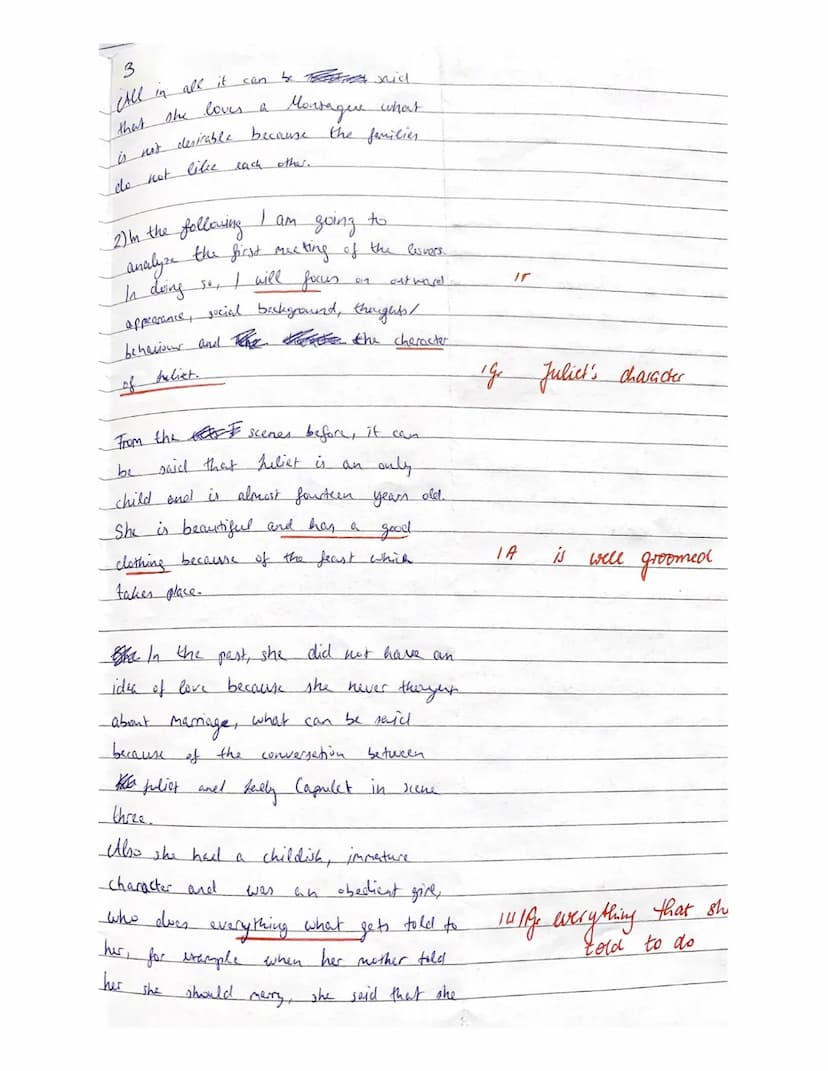 3
All in all it can be said
that she loves a Montague what
is not desirable because the families
do not like each other.
2) In the following I am going to
analyze the first meeting of the lovers.
In doing so, I will focus on outward
appearance, social background, thoughts/
behaviour and the character
of Juliet.
Gr Juliet's character
From the scenes before, it can
be said that Juliet is an only
child and is almost fourteen years old.
She is beautiful and has a good
clothing because of the feast which
takes place.
1A is well groomed
In the past, she did not have an
idea of love because she never thought
about marriage, what can be said
because of the conversation between
Juliet and Lady Capulet in scene
three.
Also she had a childish, immature
character and was an obedient girl,
who does everything what gets told to
her, for example when her mother told
her she should marry, she said that she
everything that sh
told to do